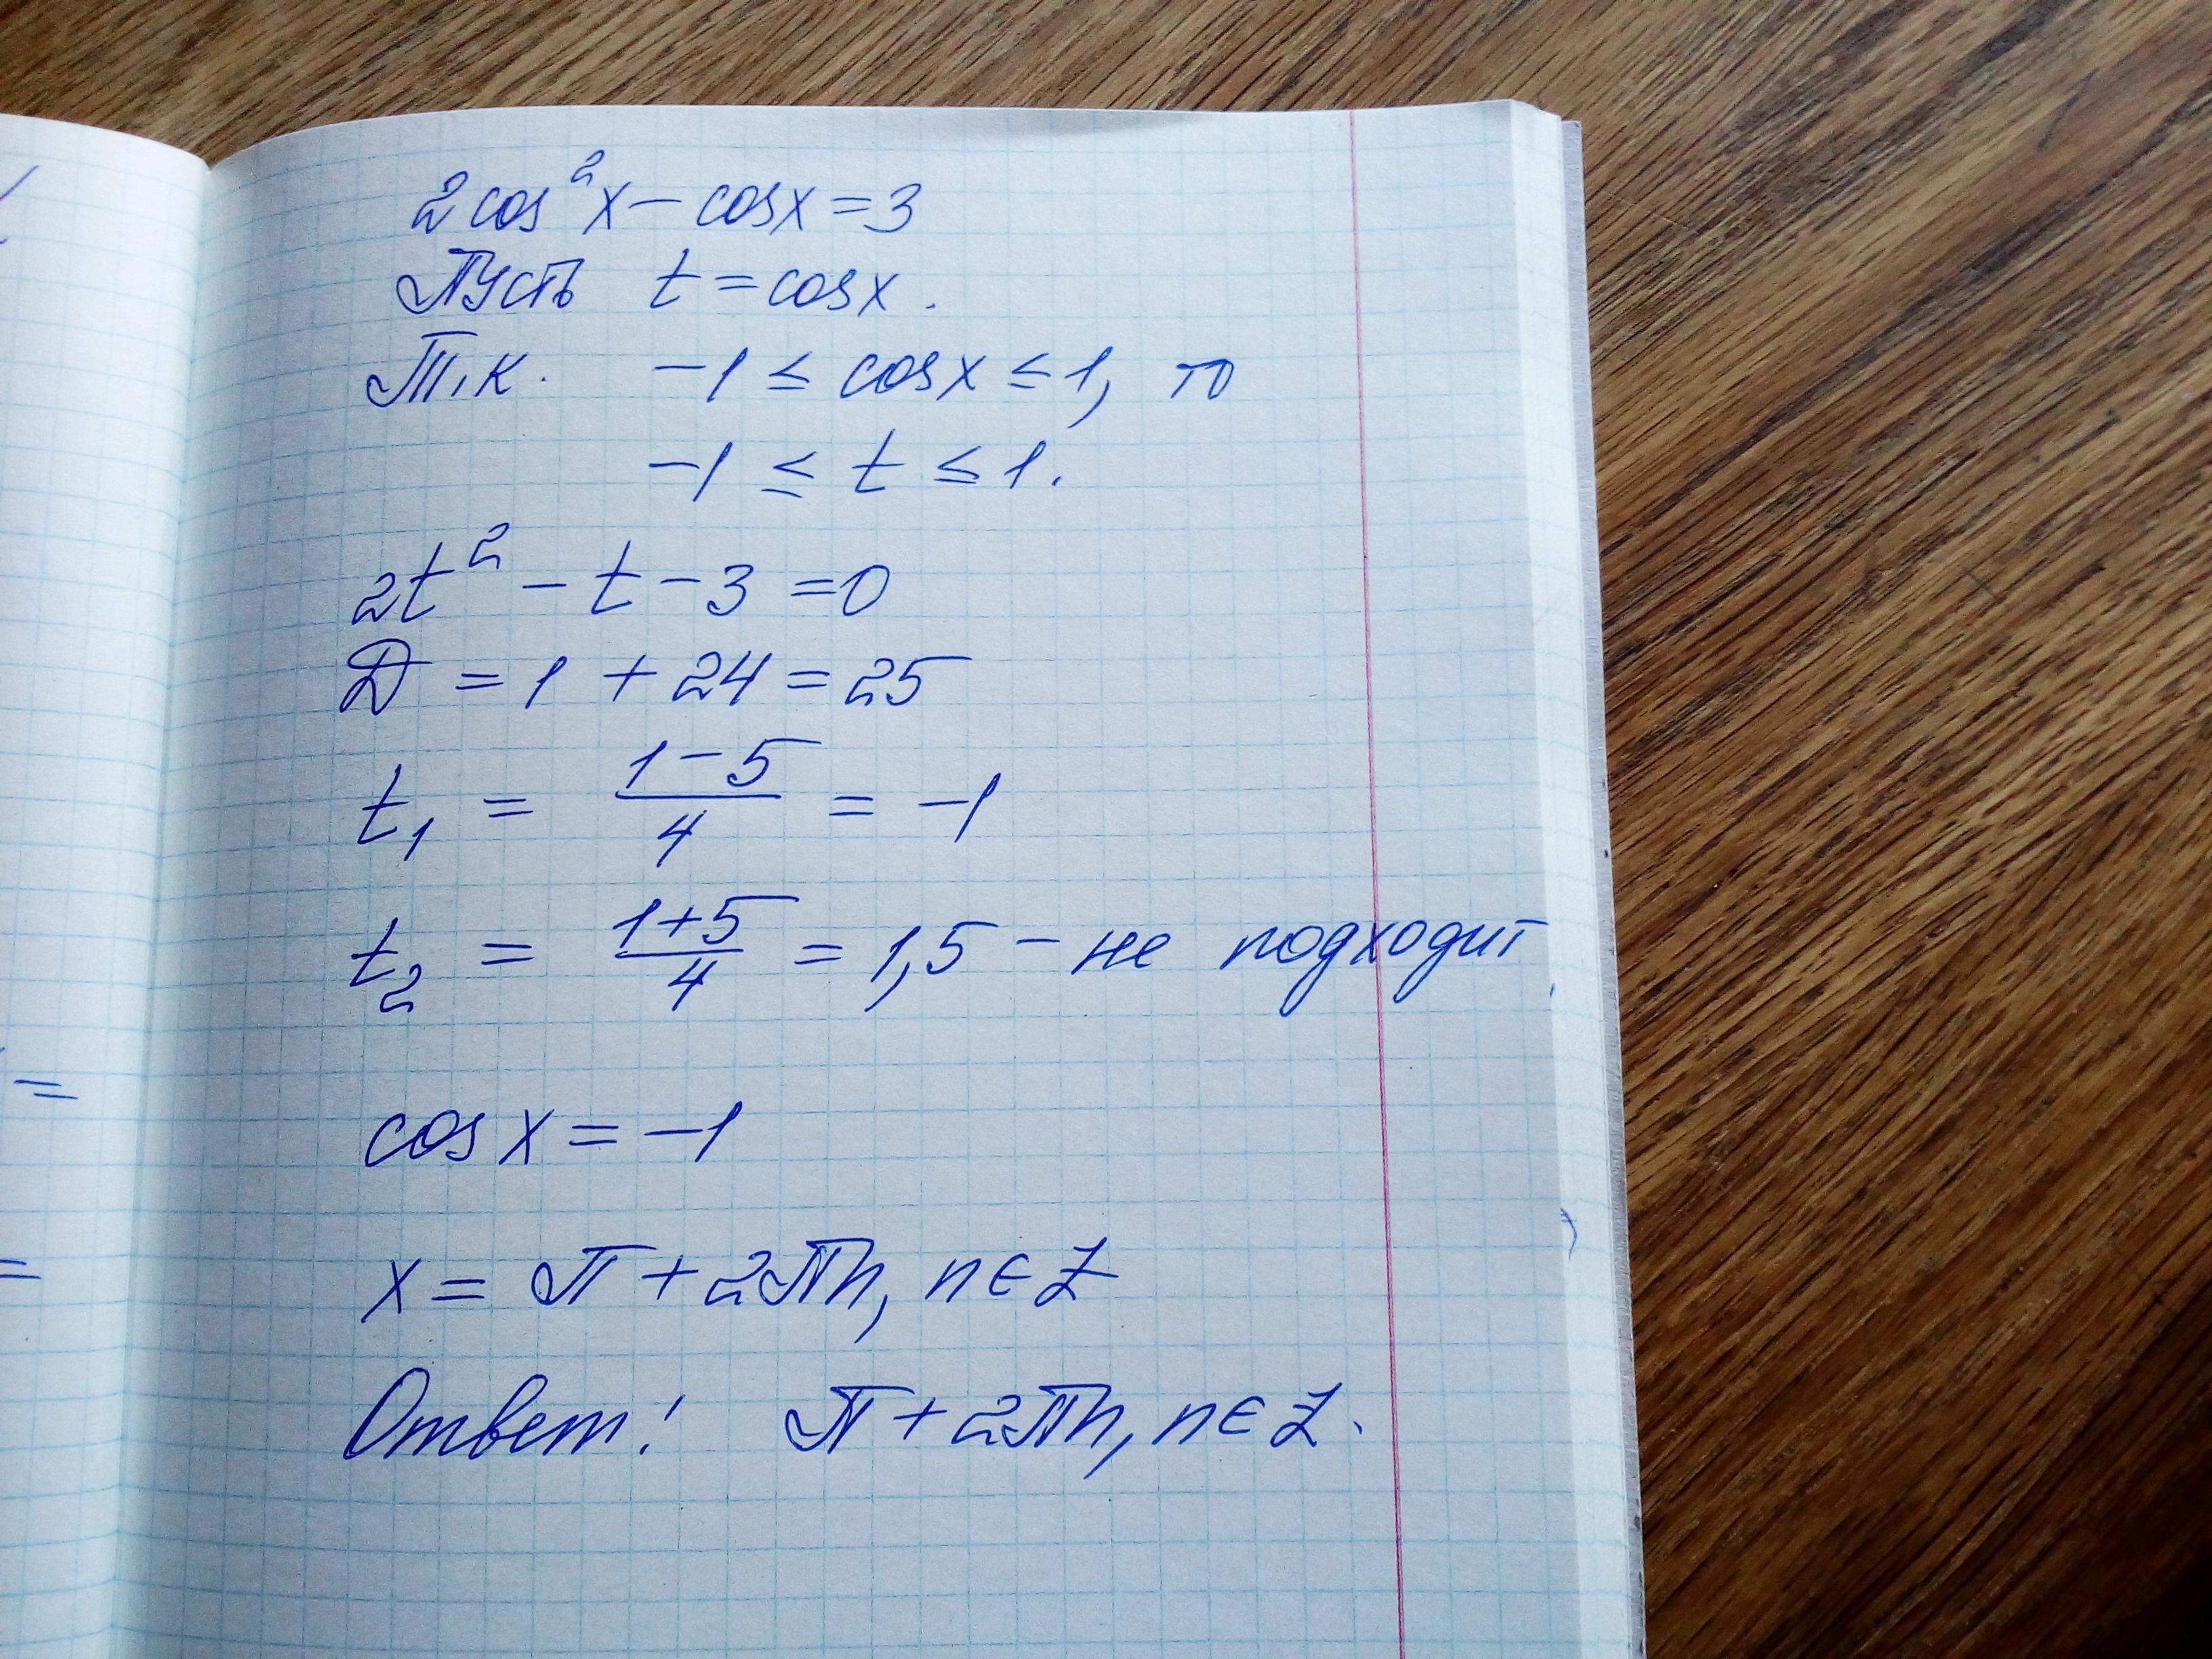 2cos²x − cosx = 3
Пусть t = cosx.
Т.к. −1 ≤ cosx ≤ 1, то
−1 ≤ t ≤ 1.
2t² − t − 3 = 0
D = 1 + 24 = 25
t₁ = (1−5)/4 = −1
t₂ = (1+5)/4 = 1,5 − не подходит,
cosx = −1
x = π + 2πn, n∈Z
Ответ! π + 2πn, n∈Z.
=
=